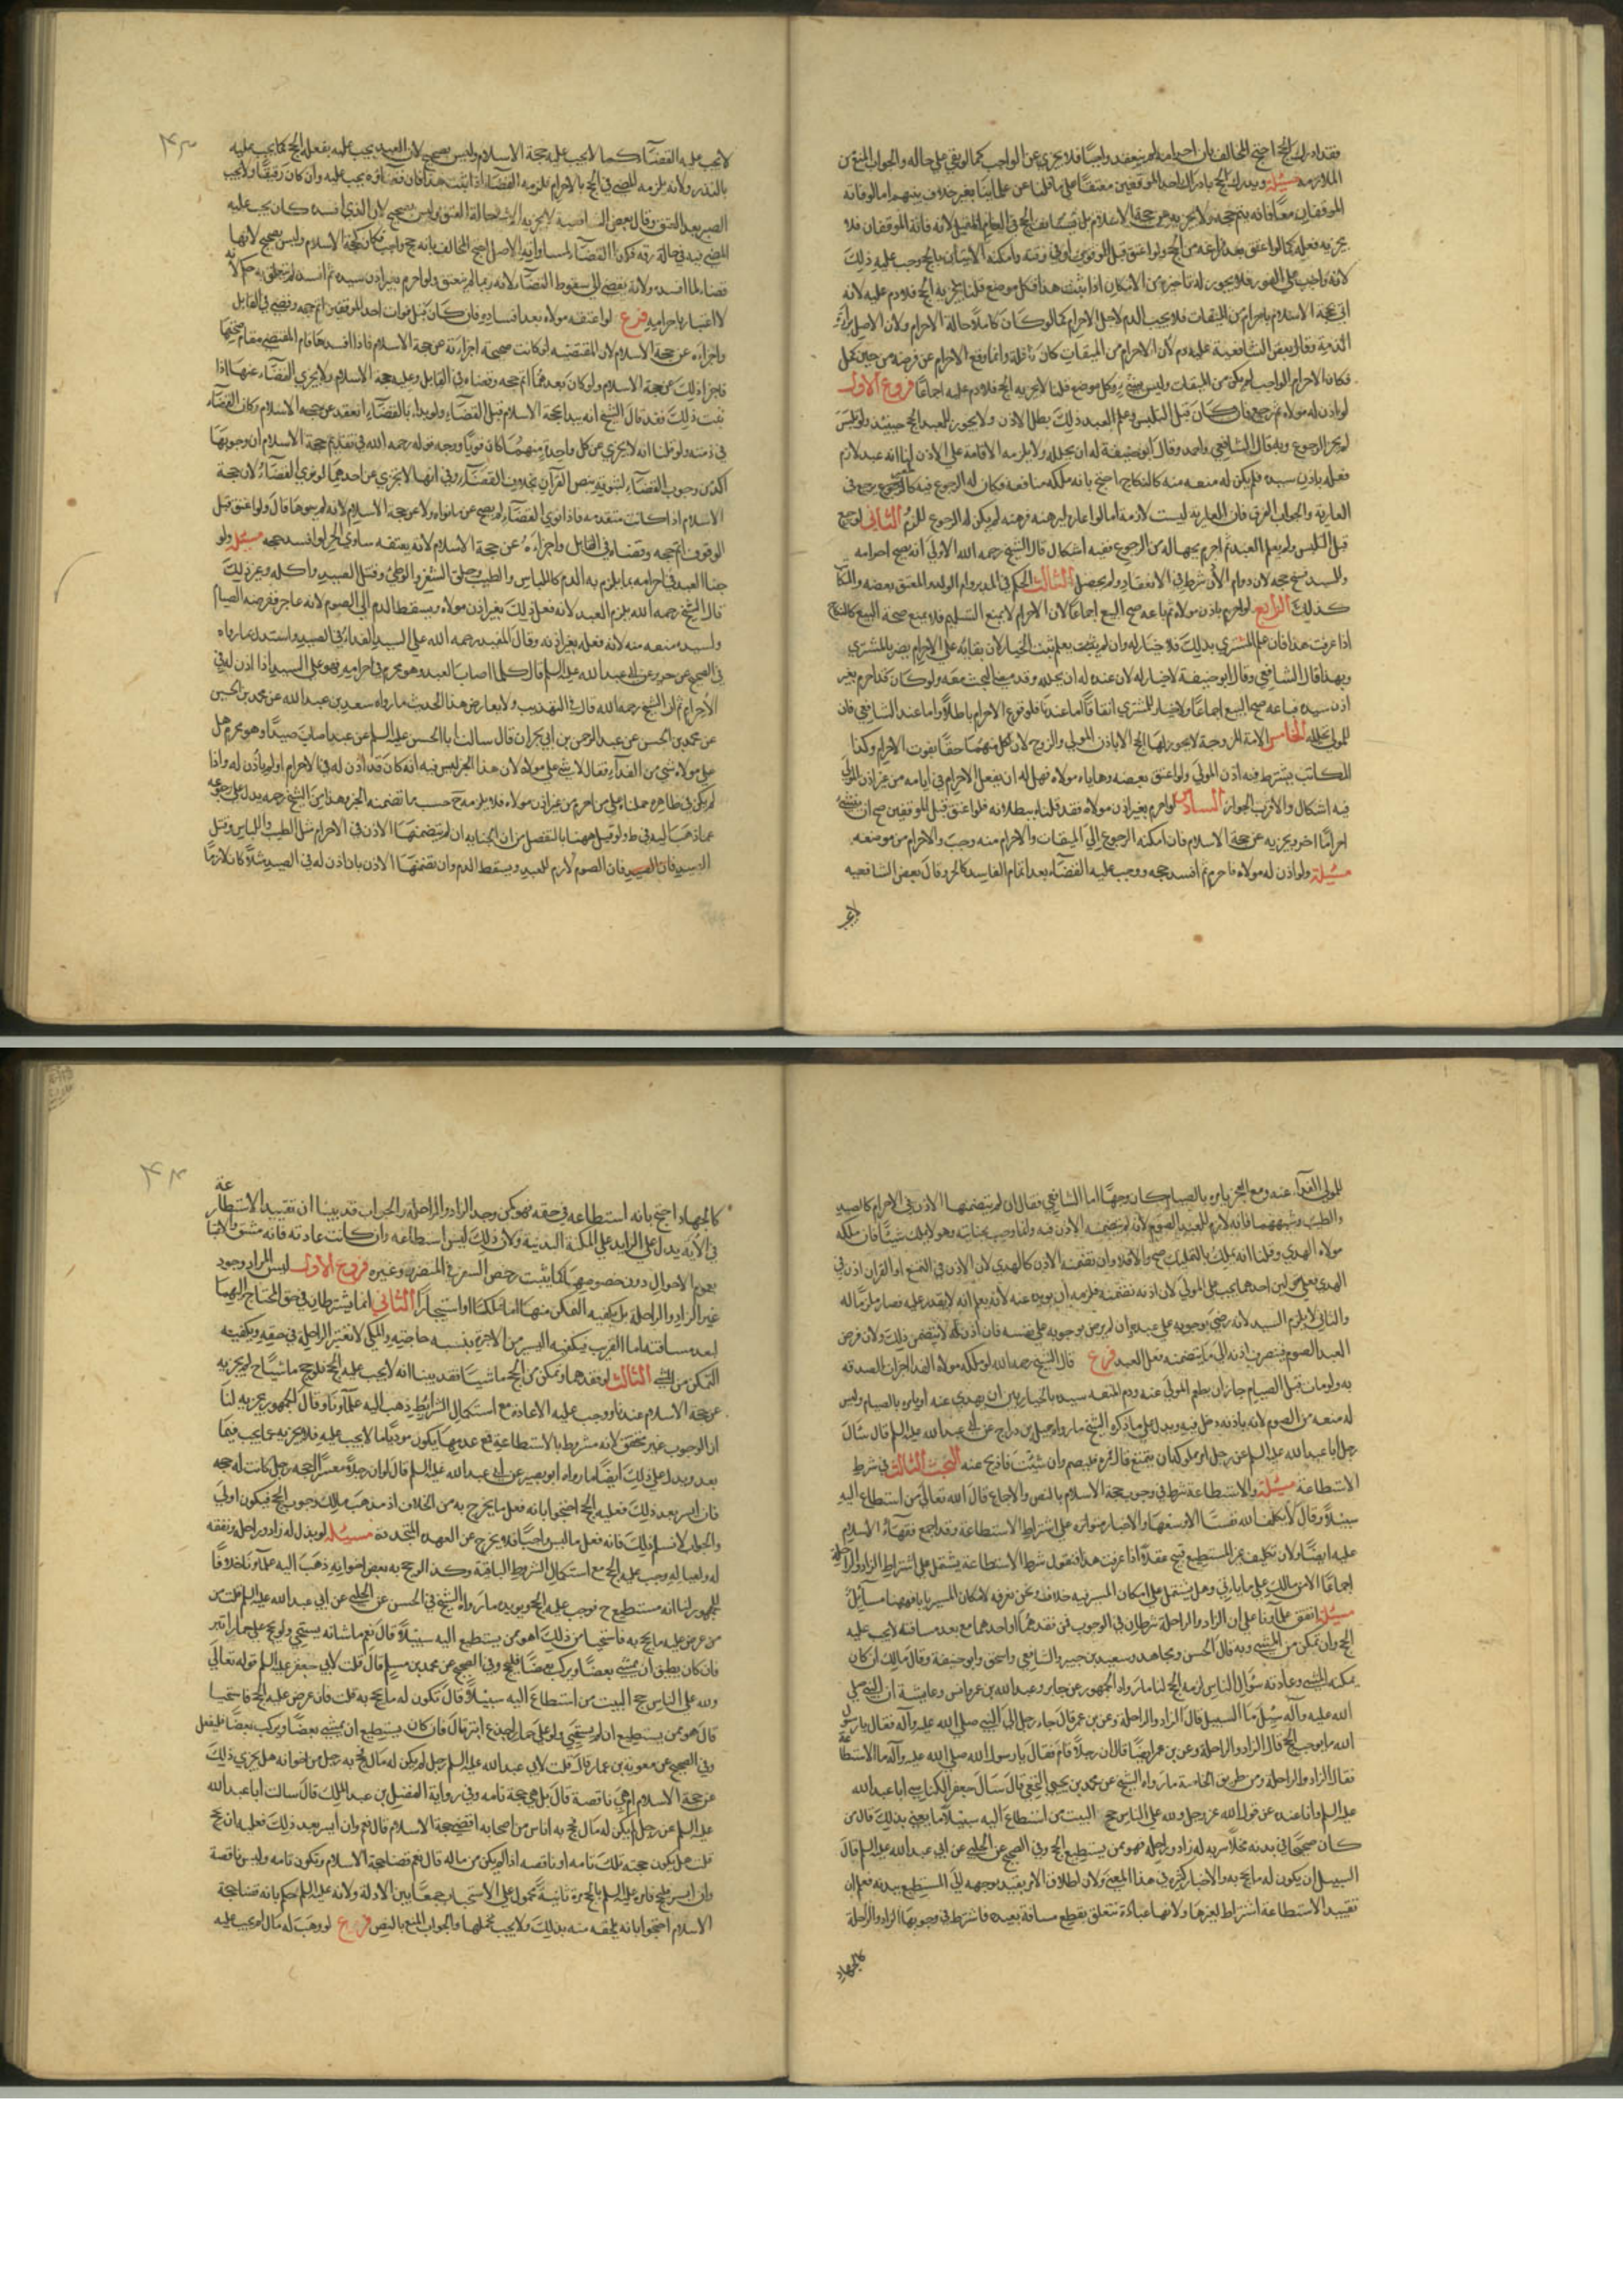 فقد ادرك الحج احتج المخالف بان احرامه لم ينعقد واجبا فلا يجزي عن الواجب كما لو بقي على حاله والجواب المنع من
الملازمة مسئلة ويدرك الحج بادراك احد الموقفين معتقا على ما قلنا عن علمائنا بغير خلاف بينهم اما لو فاته
الموقفان معا فانه يتم حجه ولا يجزيه عن حجة الاسلام بل الحج في العام المقبل لانه فاته الموقفان فلا
يجزيه فعله كما لو اعتق بعد فراغه من الحج ولو اعتق قبل الوقوف او في وقته وامكنه الاتيان بالحج وجب عليه ذلك
لانه واجب على الفور فلا يجوز له تاخيره مع الامكان اذا ثبت هذا فكل موضع قلنا يجزيه الحج فلا دم عليه لانه
اتى بحجة الاسلام باحرام من الميقات فلا يجب الدم لاجل الاحرام كما لو كان كاملا حالة الاحرام ولان الاصل براءة
الذمة وقال بعض الشافعية عليه دم لان الاحرام من الميقات كان نافلة وانما وقع الاحرام عن فرضه من حين كمل
فكان الاحرام الواجب لم يكن من الميقات وليس بشيء وكل موضع قلنا لا يجزيه الحج فلا دم عليه اجماعا فروع الاول
لو اذن له مولاه ثم رجع فان كان قبل التلبس وعلم العبد ذلك بطل الاذن ولا يجوز للعبد الحج حينئذ ولو تلبس
لم يجز الرجوع وبه قال الشافعي واحمد وقال ابو حنيفة له ان يحلله ولا يلزمه الاقامة على الاذن لنا انه عقد لازم
فعله باذن سيده فلم يكن له منعه منه كالنكاح احتج بانه ملكه منافعه فكان له الرجوع فيه كالمعير يرجع في
العارية والجواب الفرق فان العارية ليست لازمة اما لو اعاره ليرهنه فرهنه لم يكن له الرجوع للزوم الثاني لو رجع
قبل التلبس ولم يعلم العبد ثم احرم بجهالة من الرجوع ففيه اشكال قال الشيخ رحمه الله الاولى انه يصح احرامه
وللسيد فسخ حجه لان دوام الاذن شرط في الانعقاد ولم يحصل الثالث الحكم في المدبر وام الولد والمعتق بعضه والمكاتب
كذلك الرابع لو احرم باذن مولاه ثم باعه صح البيع اجماعا لان الاحرام لا يمنع التسليم فلا يمنع صحة البيع كالنكاح
اذا عرفت هذا فان علم المشتري بذلك فلا خيار له وان لم يعلم ثبت الخيار لان بقائه على الاحرام يضر بالمشتري
وبهذا قال الشافعي وقال ابو حنيفة لا خيار له لان عنده له ان يحلله وقد مضى البحث معه ولو كان قد احرم بغير
اذن سيده فباعه صح البيع اجماعا ولا خيار للمشتري اتفاقا اما عندنا فلوقوع الاحرام باطلا واما عند الشافعي فان
للمولى تحلله الخامس الامة المزوجة لا يجوز لها الحج الا باذن المولى والزوج لان لكل منهما حقا يفوت الاحرام وكذا
المكاتب يشترط فيه اذن المولى ولو اعتق بعضه وهاياه مولاه فهل له ان يفعل الاحرام في ايامه من غير اذن المولى
فيه اشكال والاقرب الجواز السادس لو احرم بغير اذن مولاه فقد قلنا ببطلانه فلو اعتق قبل الموقفين صح ان ينشئ
احراما اخر ويجزيه عن حجة الاسلام فان امكنه الرجوع الى الميقات والاحرام منه وجب والاحرام من موضعه
مسئلة ولو اذن له مولاه فاحرم ثم افسد حجه ووجب عليه القضاء بعد اتمام الفاسد كالحر وقال بعض الشافعية
لا يجب عليه القضاء كما لا يجب عليه حجة الاسلام وليس بصحيح لان العبد يجب عليه بفعله الحج كما يجب عليه
بالنذر ولانه يلزمه المضي في الحج بالاحرام فلزمه القضاء اذا ثبت هذا فان قضاءه يجب عليه وان كان رقيقا ولا يجب
الصبر بعد العتق وقال بعض الشافعية لا يجزيه الا في حالة العتق وليس بصحيح لان الذي افسده كان يجب عليه
المضي فيه في حالة رقه فكذا القضاء لمساواته الاصل احتج المخالف بانه حج واجب فكان كحجة الاسلام وليس بصحيح لانها
قضاء لما افسد ولانه يفضي الى سقوط القضاء لانه ربما لم يعتق ولو احرم بغير اذن سيده ثم افسد لم يتعلق به حكم لانه
لا اعتبار باحرامه فرع لو اعتقه مولاه بعد افساده فان كان قبل فوات احد الموقفين اتم حجه وقضى في القابل
واجزاه عن حجة الاسلام لان المقتضية لو كانت صحيحة اجزاته عن حجة الاسلام فاذا افسدها قام المقضية مقام صحيحها
فاجزاه ذلك عن حجة الاسلام ولو كان بعدهما اتم حجه وقضاه في القابل وعليه حجة الاسلام ولا يجزي القضاء عنها اذا
ثبت ذلك فقد قال الشيخ انه يبدا بحجة الاسلام قبل القضاء ولو بدا بالقضاء انعقد عن حجة الاسلام وكان القضاء
في ذمته ولو قلنا انه لا يجزي عن كل واحدة منهما كان قويا ووجه قوله رحمه الله في تقديم حجة الاسلام ان وجوبها
اكد من وجوب القضاء لثبوته بنص القرآن بخلاف القضاء وفي انها لا يجزي عن احدهما لو نوى القضاء لان حجة
الاسلام اذا كانت متقدمة فاذا نوى القضاء لم يصح عن ما نواه ولا عن حجة الاسلام لانه لم ينوها قال ولو اعتق قبل
الوقوف اتم حجه وقضاه في القابل واجزاءه عن حجة الاسلام لانه بعتقه ساوى الحر لو افسد حجه مسئلة ولو
جنا العبد في احرامه بما يلزم به الدم كاللباس والطيب وحلق الشعر والوطئ وقتل الصيد واكله وغير ذلك
قال الشيخ رحمه الله يلزم العبد لانه فعل ذلك بغير اذن مولاه ويسقط الدم الى الصوم لانه عاجز ففرضه الصيام
ولسيده منعه منه لانه فعله بغير اذنه وقال المفيد رحمه الله على السيد الفداء في الصيد واستدل بما رواه
في الصحيح عن حريز عن ابي عبد الله عليه السلم قال كلما اصاب العبد وهو محرم في احرامه فهو على السيد اذا اذن له في
الاحرام ثم ان الشيخ رحمه الله قال في التهذيب ولا يعارض هذا الحديث ما رواه سعد بن عبد الله عن محمد بن الحسين
عن محمد بن الحسن عن عبد الرحمن بن ابي نجران قال سالت ابا الحسن عليه السلم عن عبد اصاب صيدا وهو محرم هل
على مولاه شيء من الفداء فقال لا شيء على مولاه لان هذا الخبر ليس فيه انه كان قد اذن له في الاحرام او لم ياذن له واذا
لم يكن في ظاهره حملناه على من احرم من غير اذن مولاه فلا يلزمه ح حسب ما تضمنه الخبر وهذا من الشيخ رحمه يدل على رجوعه
عما ذهب اليه في ط ولو قيل ههنا بالتفصيل من ان الجناية ان لم يتضمنها الاذن في الاحرام مثل الطيب واللباس وقتل
الصيد فان الصوم لازم للعبد ويسقط الدم وان تضمنها الاذن بان اذن له في الصيد مثلا كان لازما
للمولى الفداء عنه ومع العجز يامره بالصيام كان وجها اما الشافعي فقال ان لم يتضمنها الاذن في الاحرام كالصيد
والطيب وشبههما فانه لازم للعبد الصوم لانه لم يتضمنه الاذن فيه وانما وجب بجنايته وهو لا يملك شيئا فان ملكه
مولاه الهدي وقلنا انه يملك بالتمليك صح والا فلا وان تضمنه الاذن كالهدي لان الاذن في التمتع او القران اذن في
الهدي فعلى قولين احدهما يجب على المولى لان اذنه تضمنه فلزمه ان يؤديه عنه لانه يعلم انه لا يقدر عليه فصار ملزما له
والثاني لا يلزم السيد لانه رضي بوجوبه على عبده وان لم يرض بوجوبه على نفسه فان اذن له لا يتضمن ذلك ولان فرض
العبد الصوم فينصرف اذنه الى ما يتضمنه فعل العبد فرع قال الشيخ رحمه الله لو ملكه مولاه الفداء اجزاه الصدقة
به ولو مات قبل الصيام جاز ان يطعم المولى عنه ودم المتعة سيده بالخيار بين ان يهدي عنه او يامره بالصيام وليس
له منعه من الصوم لانه باذنه دخل فيه ويدل على ما ذكره الشيخ ما رواه جميل بن دراج عن ابي عبد الله عليه السلم قال سال
رجل ابا عبد الله عليه السلم عن رجل امر مملوكه ان يتمتع قال فمره فليصم وان شئت فاذبح عنه البحث الثالث في شرط
الاستطاعة مسئلة والاستطاعة شرط في وجوب حجة الاسلام بالنص والاجماع قال الله تعالى من استطاع اليه
سبيلا وقال لا يكلف الله نفسا الا وسعها والاخبار متواترة على اشتراط الاستطاعة وقد اجمع فقهاء الاسلام
عليه ايضا ولان تكليف غير المستطيع قبيح عقلا اذا عرفت هذا فنقول شرط الاستطاعة يشتمل على اشتراط الزاد والراحلة
اجماعا الا من مالك على ما ياتي وهل يشتمل على امكان المسير فيه خلاف ونحن نفرد لامكان المسير بابا فههنا مسائل
مسئلة اتفق علماؤنا على ان الزاد والراحلة شرطان في الوجوب فمن فقدهما او احدهما مع بعد مسافته لا يجب عليه
الحج وان تمكن من المشي وبه قال الحسن ومجاهد وسعيد بن جبير والشافعي واسحق وابو حنيفة وقال مالك ان كان
يمكنه المشي وعادته سؤال الناس لزمه الحج لنا ما رواه الجمهور عن جابر وعبد الله بن عمر وانس وعايشة ان النبي صلى
الله عليه وآله سئل ما السبيل قال الزاد والراحلة وعن بن عمر قال جاء رجل الى النبي صلى الله عليه وآله فقال يا رسول
الله ما يوجب الحج قال الزاد والراحلة وعن بن عمر ايضا قال ان رجلا قام فقال يا رسول الله صلى الله عليه وآله ما الاستطاعة
فقال الزاد والراحلة ومن طريق الخاصة ما رواه الشيخ عن محمد بن يحيى الخثعمي قال سال حفص الكناسي ابا عبد الله
عليه السلم وانا عنده عن قول الله عز وجل ولله على الناس حج البيت من استطاع اليه سبيلا ما يعني بذلك قال من
كان صحيحا في بدنه مخلا سربه له زاد وراحلة فهو ممن يستطيع الحج وفي الصحيح عن الحلبي عن ابي عبد الله عليه السلم قال
السبيل ان يكون له ما يحج به والاخبار كثيرة في هذا المعنى ولان اطلاق الامر يفيد توجهه الى المستطيع ببدنه فعلم ان
تقييد الاستطاعة اشتراط لغيرها ولانها عبادة تتعلق بقطع مسافة بعيدة فاشترط في وجوبها الزاد والراحلة
كالجهاد
كالجهاد احتج بانه استطاعة في حقه فهو كمن وجد الزاد والراحلة والجواب قد بينا ان تقييد الاستطاعة
في الاية يدل على الزايد على المكنة البدنية ولان ذلك ليس استطاعة وان كانت عادته فانه مشق والاعتبار
بعموم الاحوال دون خصوصها كما يثبت رخص السفر في المتضرر وغيره فروع الاول ليس المراد وجود
عين الزاد والراحلة بل يكفيه التمكن منهما اما تملكا او استيجارا الثاني انما يشترطان في حق المحتاج اليهما
لبعد مسافته اما القريب فيكفيه اليسير من الاجرة بنسبة حاجته والمكي لا تعتبر الراحلة في حقه ويكفيه
التمكن من المشي الثالث لو فقدهما وتمكن من الحج ماشيا فقد بينا انه لا يجب عليه الحج فلو حج ماشيا ح لم يجزيه
عن حجة الاسلام عندنا ووجب عليه الاعادة مع استكمال الشرايط ذهب اليه علماؤنا وقال الجمهور يجزيه لنا
ان الوجوب غير متحقق لانه مشروط بالاستطاعة فمع عدمها يكون مؤديا ما لا يجب عليه فلا يجزيه عما يجب فيما
بعد ويدل على ذلك ايضا ما رواه ابو بصير عن ابي عبد الله عليه السلم قال لو ان رجلا معسرا احجه رجل كانت له حجة
فان ايسر بعد ذلك فعليه الحج احتجوا بانه فعل ما يخرج به من الخلاف اذ مذهب مالك وجوب الحج فيكون اولى
والجواب لا نسلم ذلك فانه فعل ما ليس واجبا فلا يخرج عن العهدة المتجددة مسئلة لو بذل له زاد وراحلة ونفقة
له ولعياله وجب عليه الحج مع استكمال الشروط الباقية وكذا لو حج به بعض اخوانه ذهب اليه علماؤنا خلافا
للجمهور لنا انه مستطيع ح فوجب عليه الحج ويويده ما رواه الشيخ في الحسن عن الحلبي عن ابي عبد الله عليه السلم قلت من
من عرض عليه ما يحج به فاستحيا من ذلك اهو ممن يستطيع اليه سبيلا قال نعم ما شانه يستحيي ولو يحج على حمار ابتر
فان كان يطيق ان يمشي بعضا ويركب بعضا فليحج وفي الصحيح عن محمد بن مسلم قال قلت لابي جعفر عليه السلم قوله تعالى
ولله على الناس حج البيت من استطاع اليه سبيلا قال تكون له ما يحج به قلت فان عرض عليه الحج فاستحيا
قال هو ممن يستطيع ان لم يستحيي ولو على حمار اجدع ابتر قال فان كان يستطيع ان يمشي بعضا ويركب بعضا فليفعل
وفي الصحيح عن معوية بن عمار قال قلت لابي عبد الله عليه السلم رجل لم يكن له مال فحج به رجل من اخوانه هل يجزي ذلك
عن حجة الاسلام ام هي ناقصة قال بل هي حجة تامة وفي رواية الفضل بن عبد الملك قال سالت ابا عبد الله
عليه السلم عن رجل لم يكن له مال فحج به اناس من اصحابه اقضى حجة الاسلام قال نعم وان ايسر بعد ذلك فعليه ان يحج
قلت هل يكون حجته تلك تامة او ناقصة اذا لم يكن من ماله قال نعم قضا حجة الاسلام وتكون تامة وليس ناقصة
وان ايسر فليحج فامره عليه السلم بالحج مرة ثانية محمول على الاستحباب جمعا بين الادلة ولانه عليه السلم حكم بانه قضا حجة
الاسلام احتجوا بانه يلحقه منه بذلك ولا يجب تحملها والجواب المنع بالنص فرع لو وهب له مال لم يجب عليه